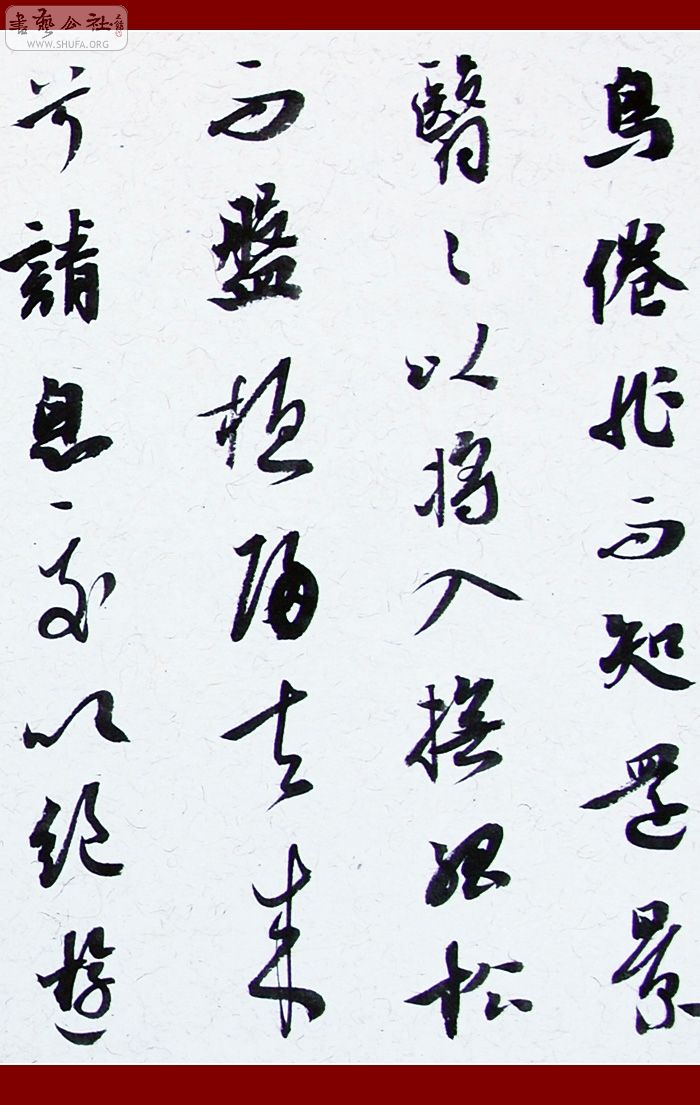 書藝公社
WWW.SHUFA.ORG
鳥倦飛而知還景
翳々以將入撫孤松
而盤桓歸去来
兮請息交以絕遊